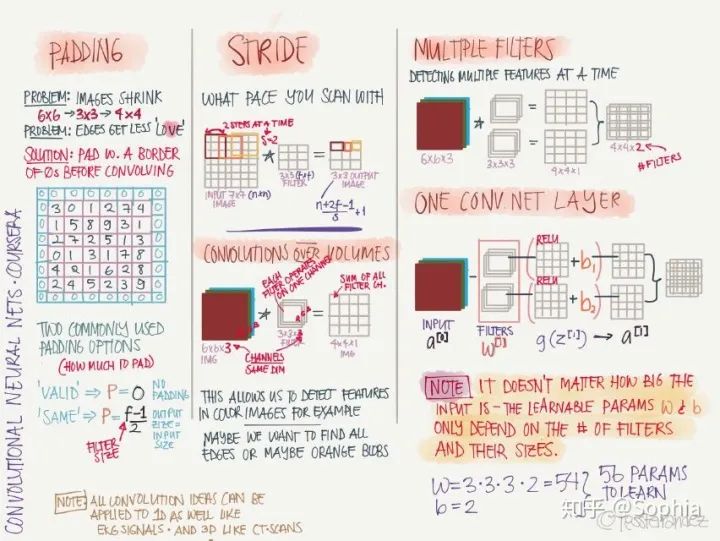 CONVOLUTIONAL NEURAL NETS · COURSERA
PADDING
PROBLEM: IMAGES SHRINK
6x6 → 3x3 → 4x4
PROBLEM: EDGES GET LESS 'LOVE'
SOLUTION: PAD W. A BORDER
OF 0s BEFORE CONVOLVING
0 0 0 0 0 0 0 0
0 3 0 1 2 7 4 0
0 1 5 8 9 3 1 0
0 2 7 2 5 1 3 0
0 0 1 3 1 7 8 0
0 4 2 1 6 2 8 0
0 2 4 5 2 3 9 0
0 0 0 0 0 0 0 0
TWO COMMONLY USED
PADDING OPTIONS
(HOW MUCH TO PAD)
'VALID' ⇒ P = 0 NO PADDING
'SAME' ⇒ P = f-1/2 OUTPUT SIZE = INPUT SIZE
FILTER SIZE
NOTE: ALL CONVOLUTION IDEAS CAN BE
APPLIED TO 1D AS WELL LIKE
EKG SIGNALS · AND 3D LIKE CT-SCANS
STRIDE
WHAT PACE YOU SCAN WITH
2 STEPS AT A TIME
s=2
* =
INPUT 7x7 (n×n)
IMAGE
3×3 (f×f)
FILTER
3×3 OUTPUT
IMAGE
n+2p-1/s +1
CONVOLUTIONS OVER VOLUMES
EACH FILTER OPERATES ON ONE CHANNEL
SUM OF ALL
FILTER CH.
* =
6x6x3
IMG
3x3x3
FILTER
4x4x1
IMG
CHANNELS
SAME DIM
THIS ALLOWS US TO DETECT FEATURES
IN COLOR IMAGES FOR EXAMPLE
MAYBE WE WANT TO FIND ALL
EDGES OR MAYBE ORANGE BLOBS
MULTIPLE FILTERS
DETECTING MULTIPLE FEATURES AT A TIME
* = =
6x6x3
3x3x3
4x4x1
4x4x2
#FILTERS
ONE CONV. NET LAYER
RELU
+ b1
RELU
+ b2
INPUT
a[0]
FILTERS
W[1]
g(z[1]) → a[1]
NOTE IT DOESN'T MATTER HOW BIG THE
INPUT IS - THE LEARNABLE PARAMS W & b
ONLY DEPEND ON THE # OF FILTERS
AND THEIR SIZES.
W = 3·3·3·2 = 54
b = 2
56 PARAMS
TO LEARN
知乎 @Sophia
@TessFerrandez